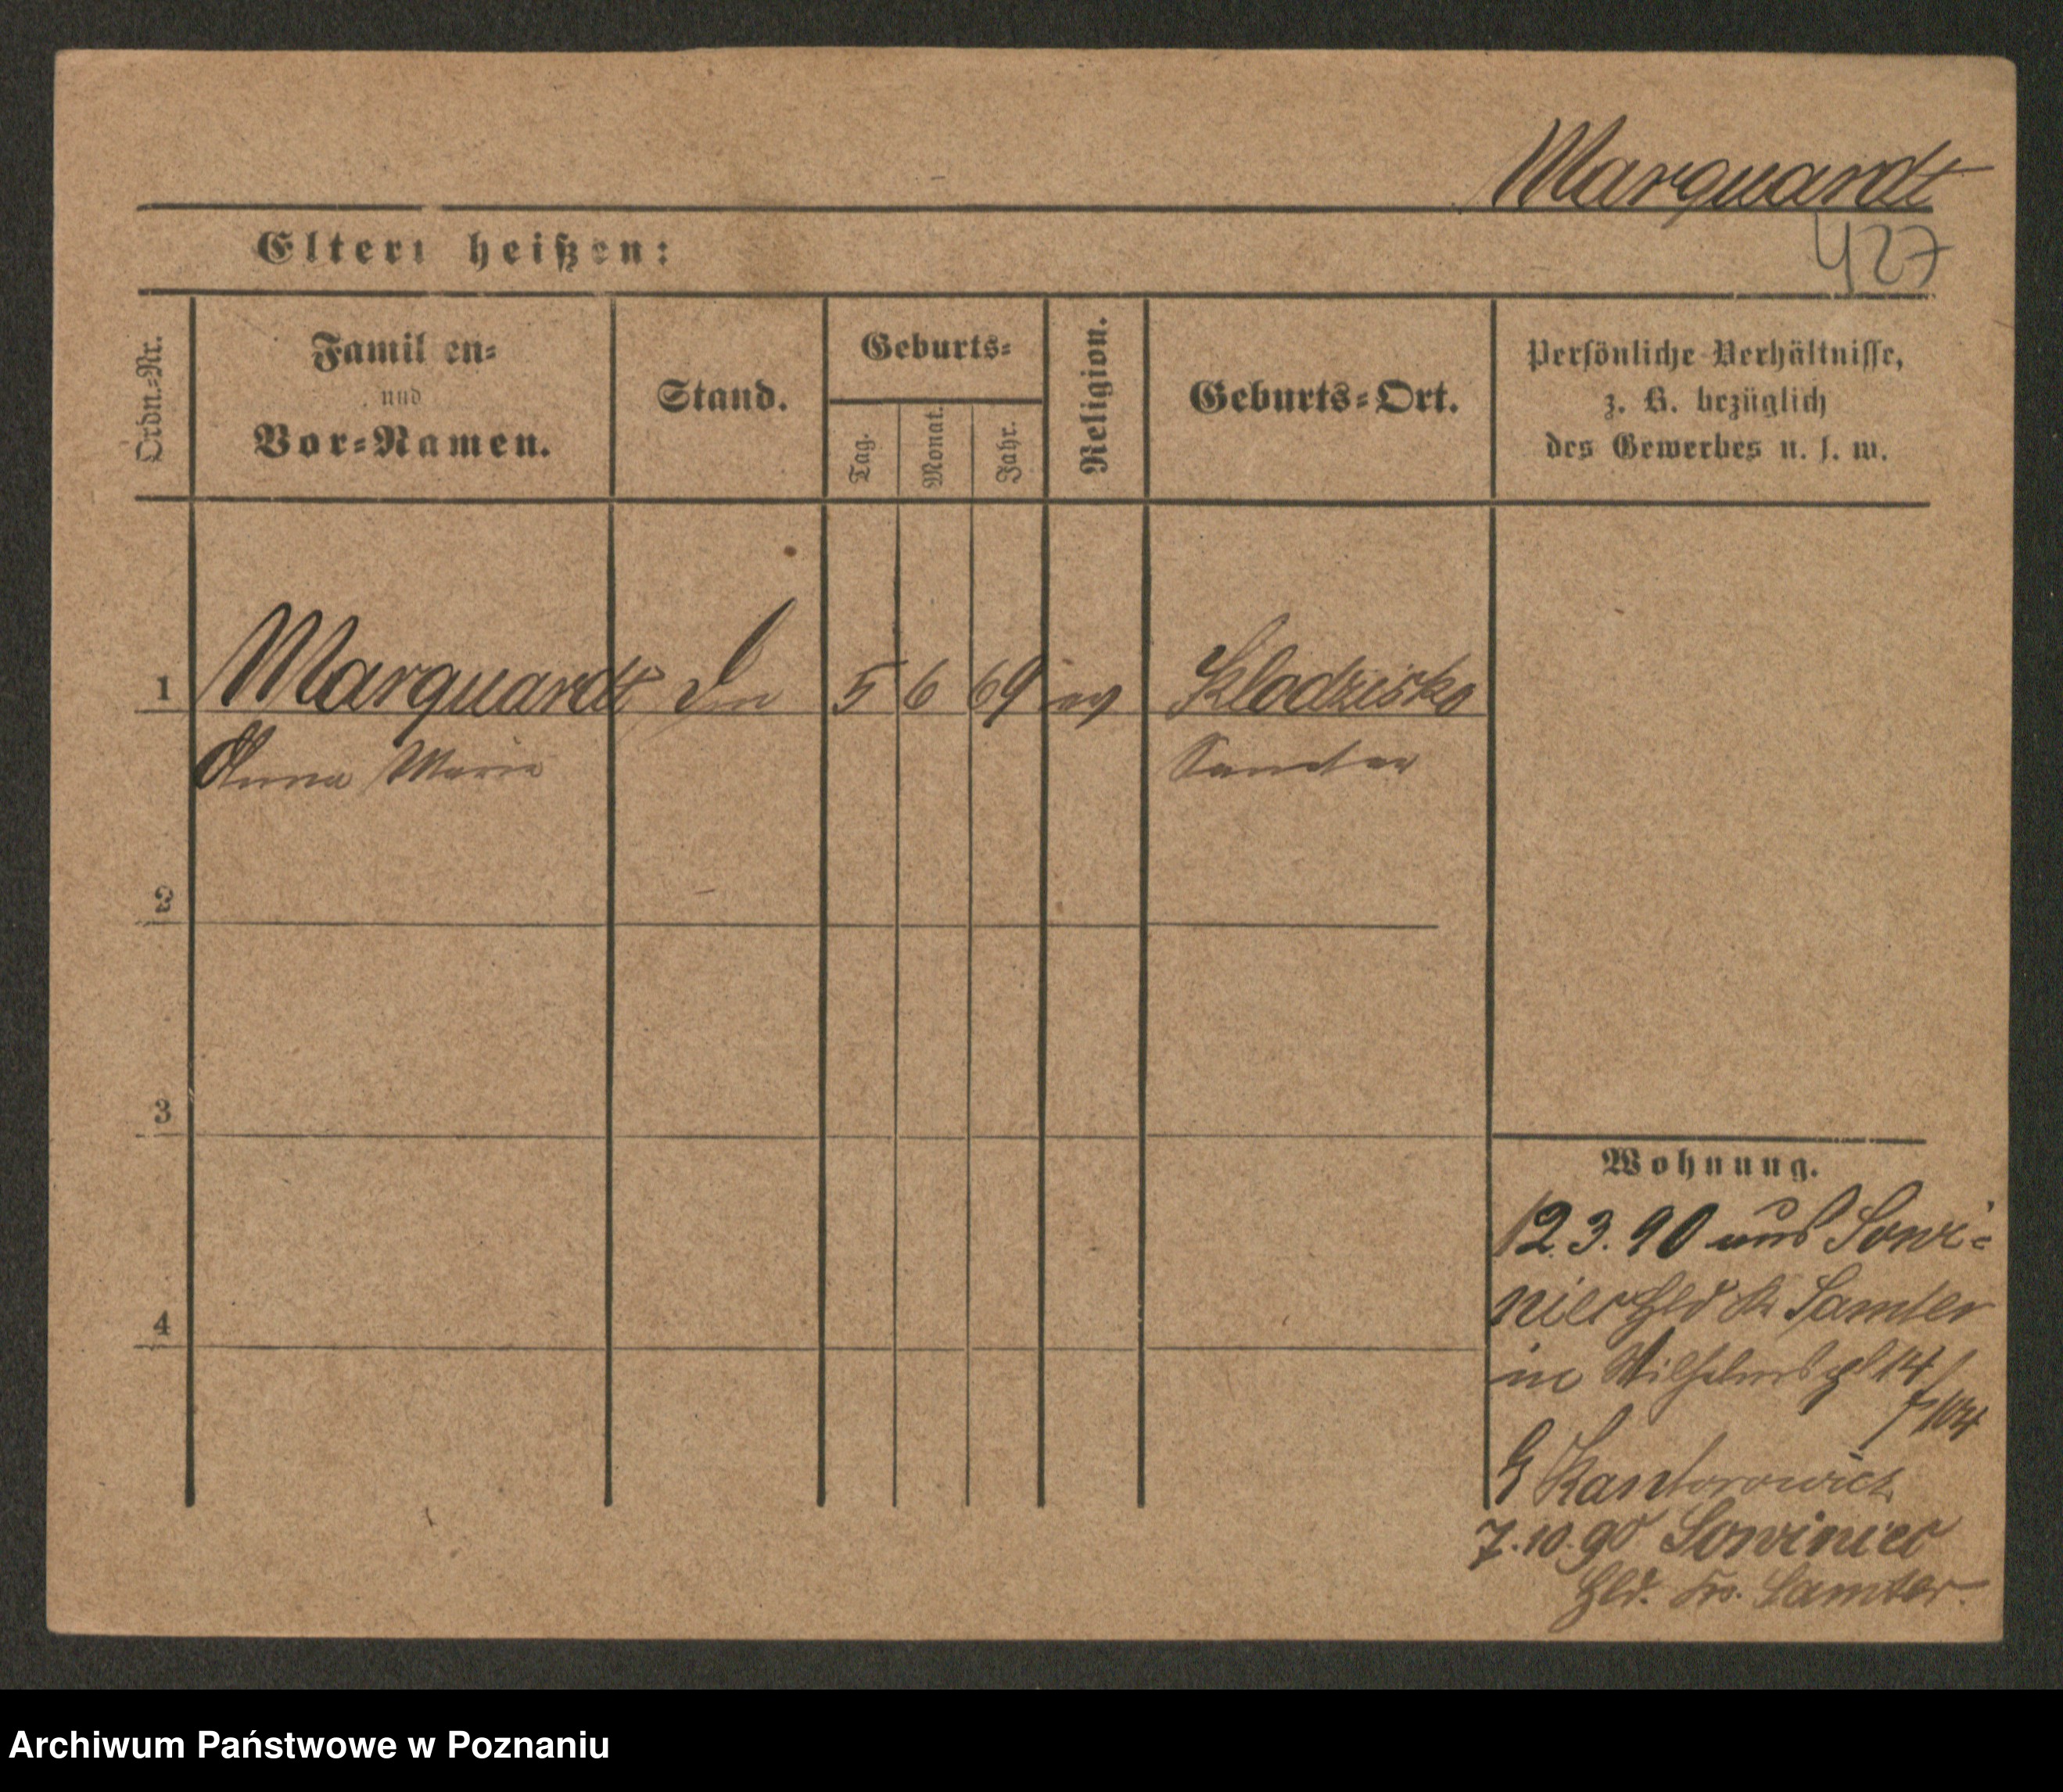 Marquardt
427
Eltern heißen:
Ordn.-Nr.
Familien-
und
Vor-Namen.
Stand.
Geburts-
Tag.
Monat.
Jahr.
Religion.
Geburts-Ort.
Persönliche Verhältnisse,
z. B. bezüglich
des Gewerbes u. s. w.
1 Marquardt 5 6 69 ev Klodzisko
Anna Marie Samter
2
3
4
Wohnung.
12.3.90 aus Sowi-
niec Hld Kr Samter
in Wilhelmspl 14/
Kantorowicz
7.10.90 Sowiniec
Hld. Krs. Samter.
Archiwum Państwowe w Poznaniu